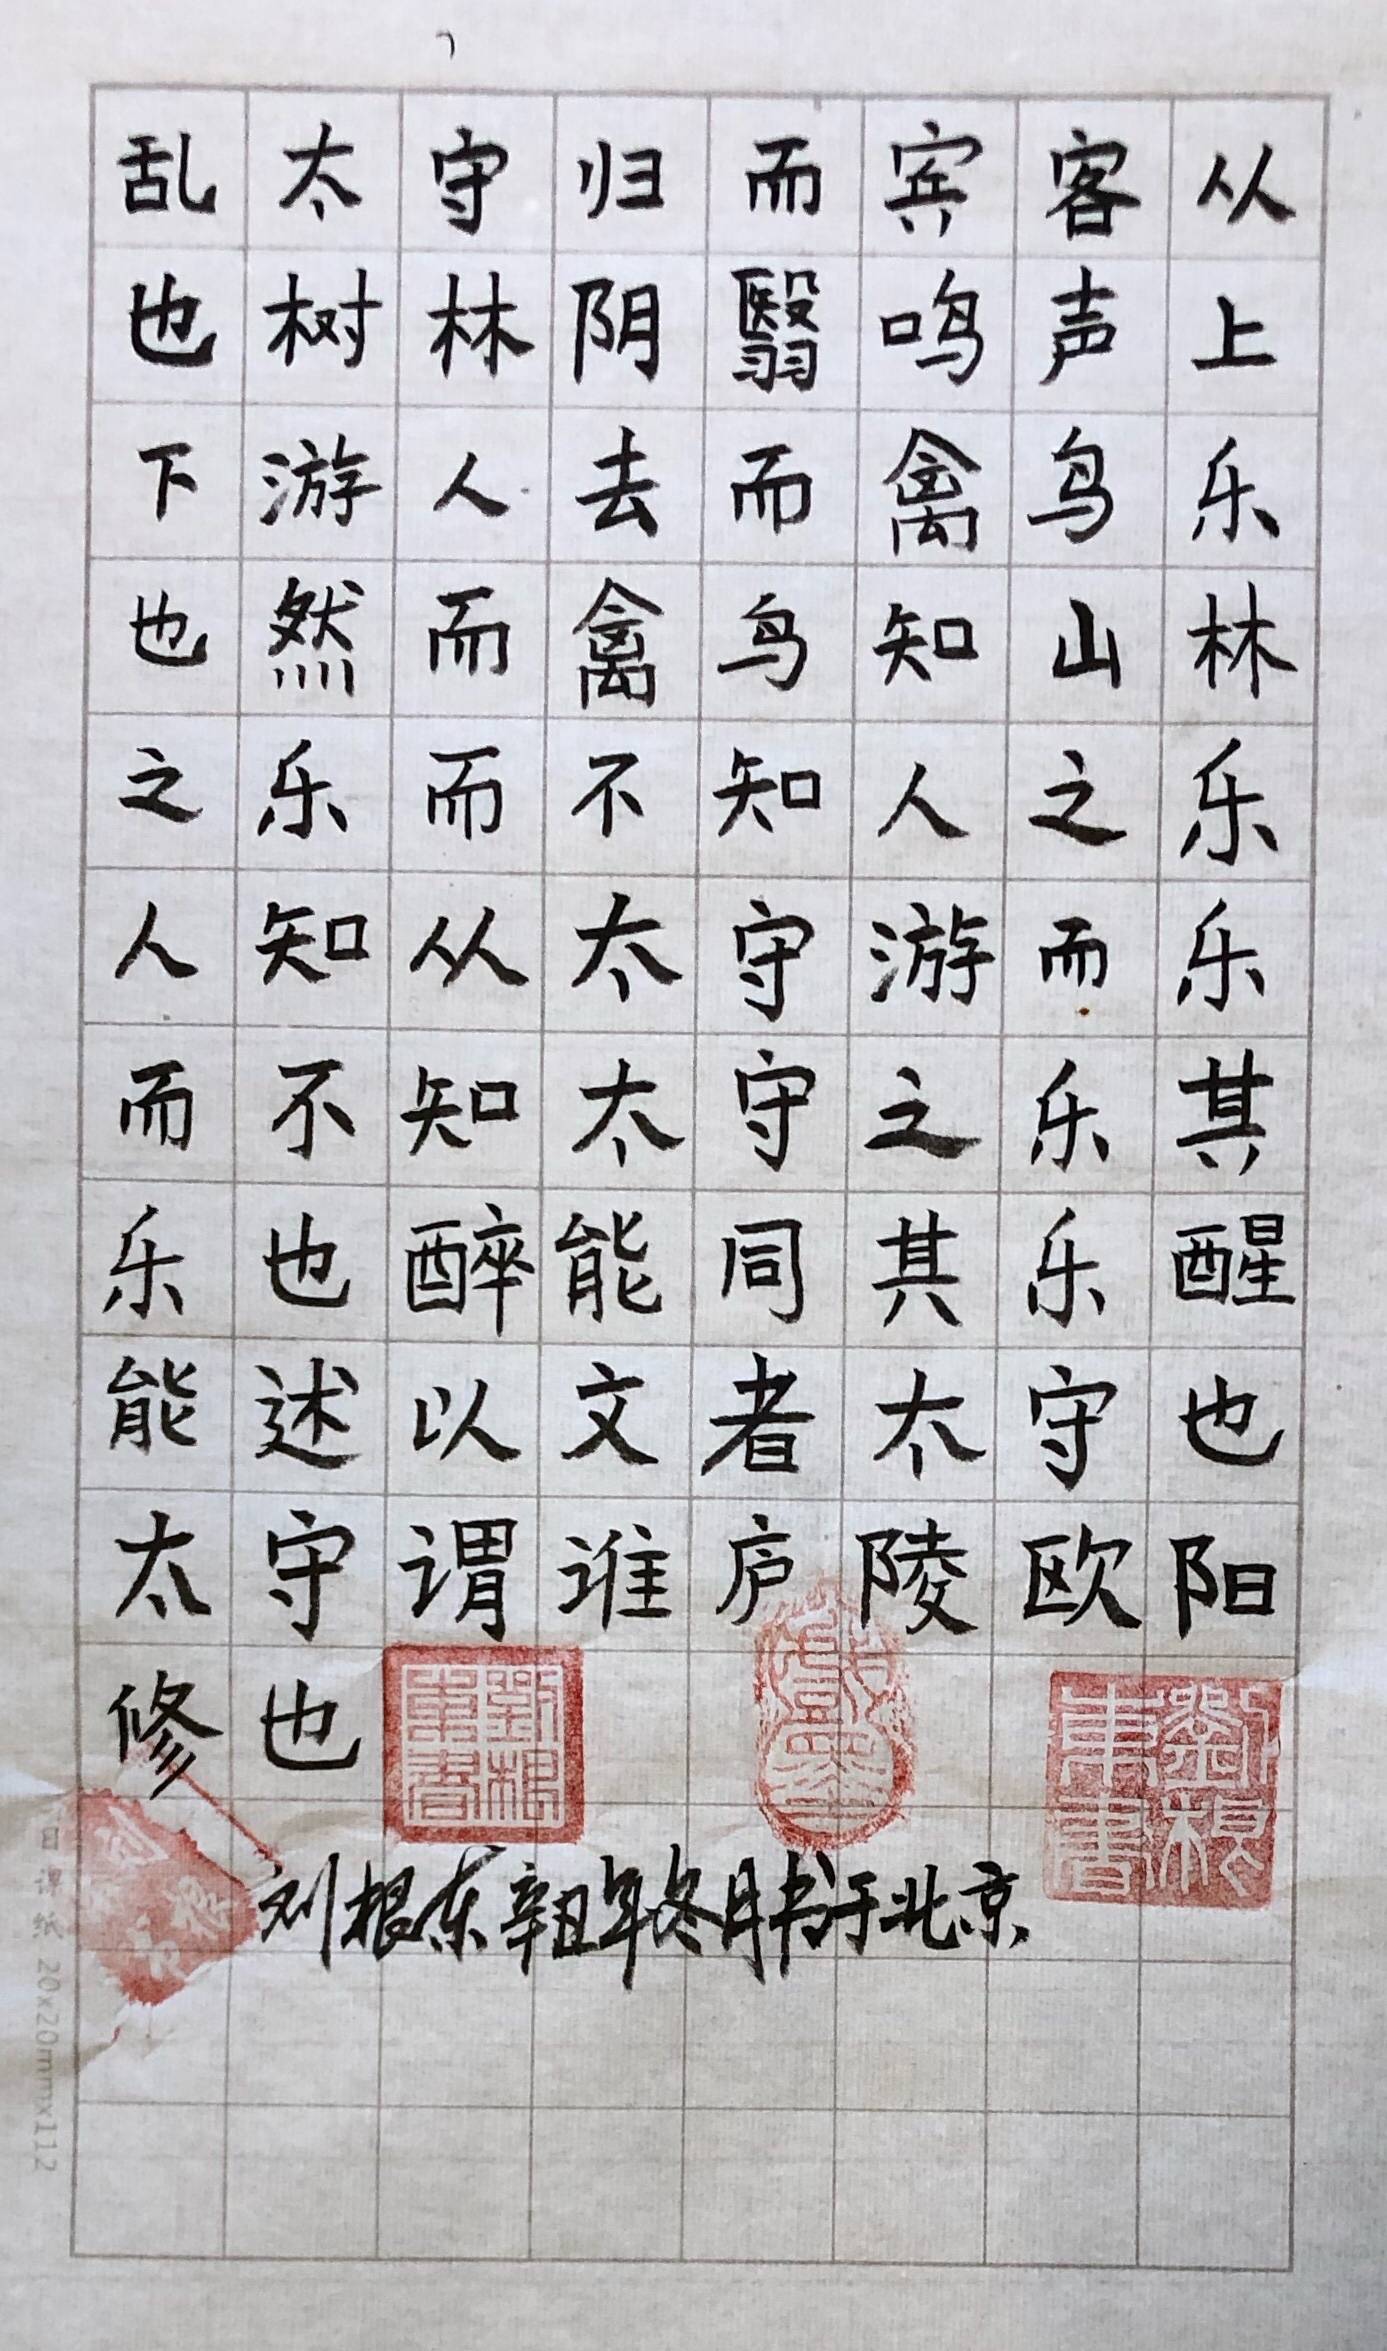 乱太守归而宾客从
也树林阴翳鸣声上
下游人去而禽鸟乐
也然而禽鸟知山林
之乐而不知人之乐
人知从太守游而乐
而不知太守之乐其
乐也醉能同其乐醒
能述以文者太守也
太守谓谁庐陵欧阳
修也
劉根東書
劉根東書
刘根东辛丑年冬月书于北京
日课纸 20x20mmx112